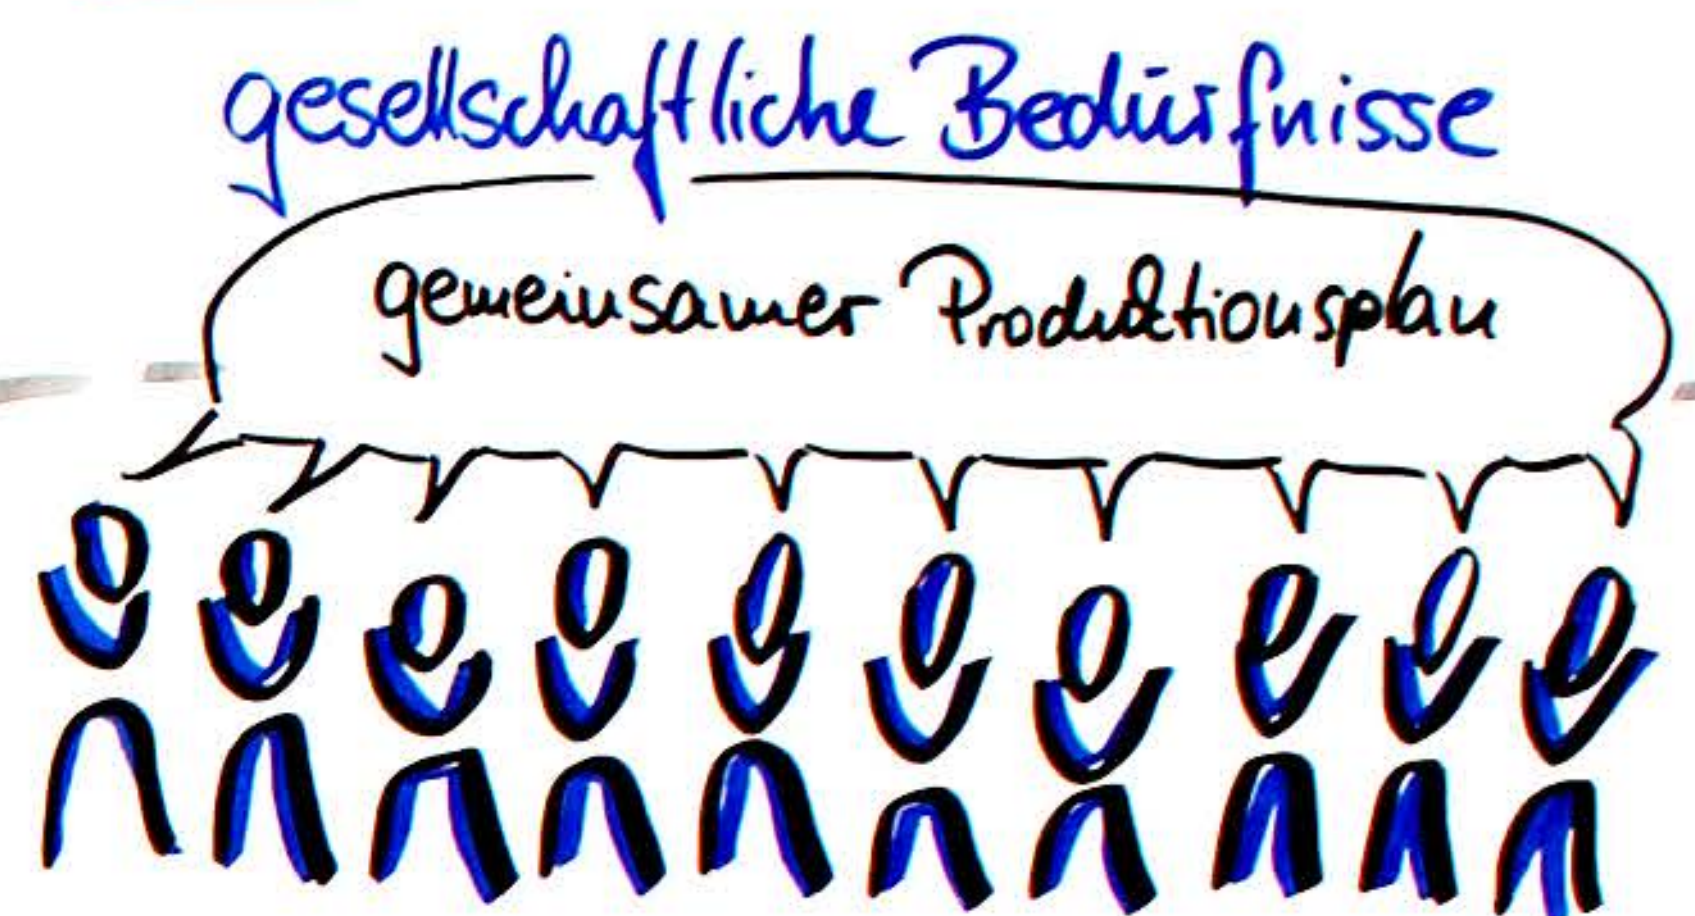 gesellschaftliche Bedürfnisse
gemeinsamer Produktionsplan